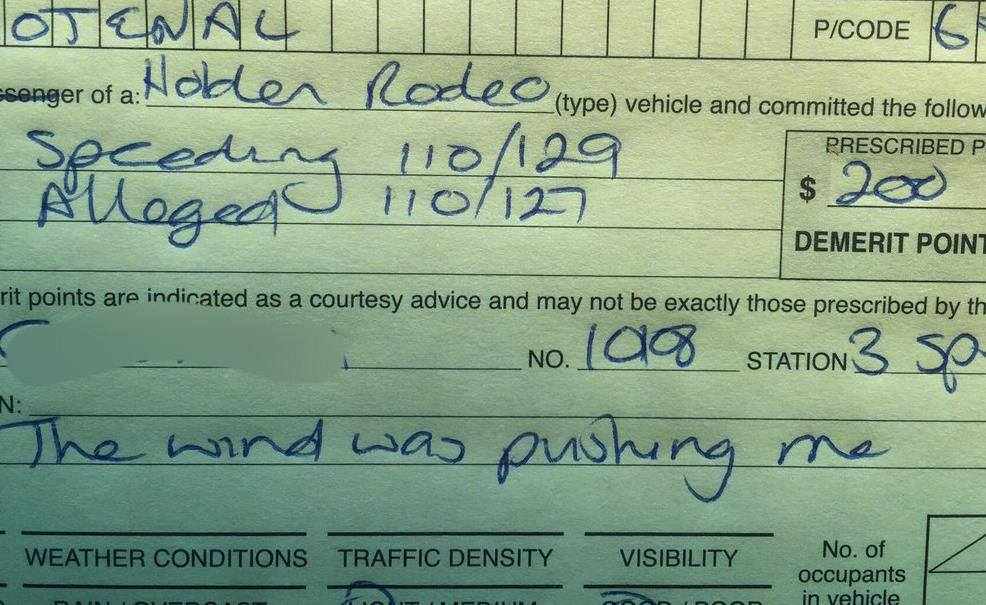 OTENAL P/CODE 6
ssenger of a: Holden Rodeo (type) vehicle and committed the follow
Speeding 110/129 PRESCRIBED P
Alleged 110/127 $ 200
DEMERIT POINT
rit points are indicated as a courtesy advice and may not be exactly those prescribed by th
NO. 1098 STATION 3 Sp
N:
The wind was pushing me
WEATHER CONDITIONS TRAFFIC DENSITY VISIBILITY No. of
occupants
in vehicle